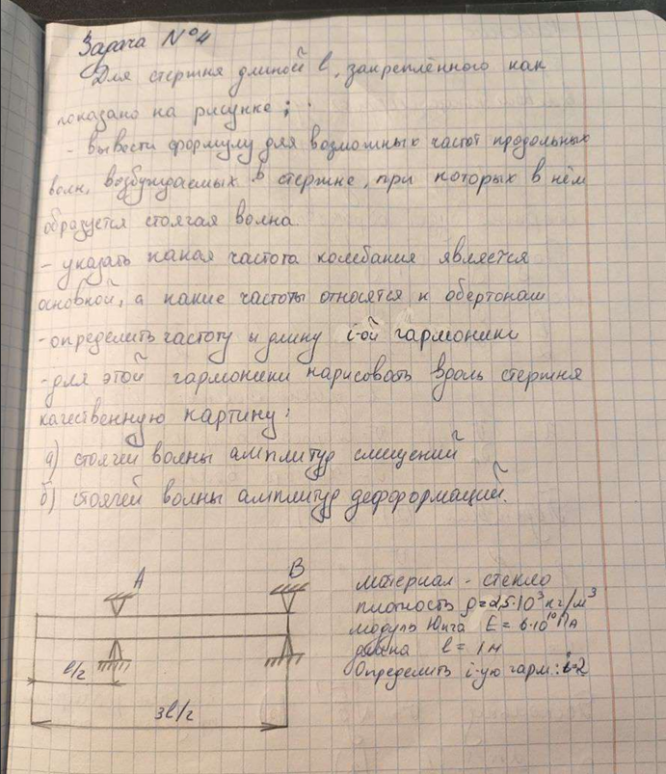 Задача №4
Для стержня длиной l, закреплённого как
показано на рисунке;
- вывести формулу для возможных частот продольных
волн, возбуждаемых в стержне, при которых в нём
образуется стоячая волна.
- указать какая частота колебания является
основной, а какие частоты относятся к обертонам
- определить частоту и длину i-ой гармоники
- для этой гармоники нарисовать вдоль стержня
качественную картину:
а) стоячей волны амплитуд смещений
б) стоячей волны амплитуд дефформаций.
A
B
l/2
3l/2
материал - стекло
плотность ρ=2,5·10³ кг/м³
модуль Юнга E = 6·10¹⁰ Па
длина l = 1м
Определить i-ую гарм: i=2